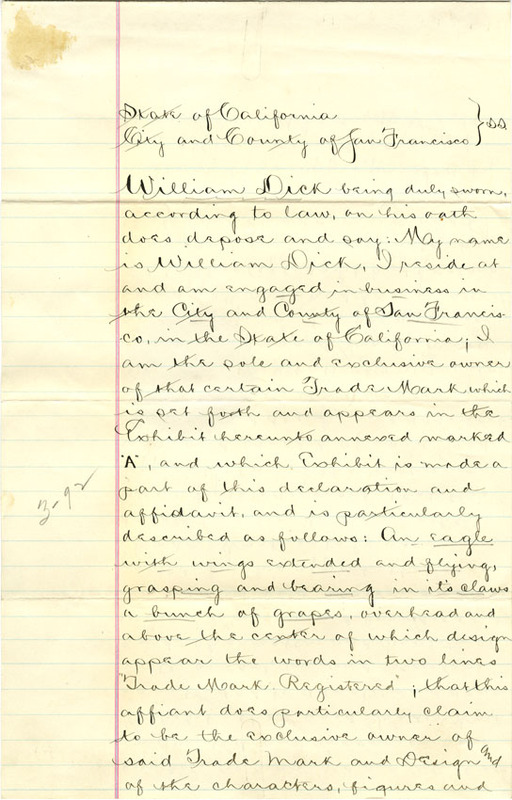 State of California
City and County of San Francisco } ss.
William Dick being duly sworn,
according to law, on his oath
does depose and say: My name
is William Dick, I reside at
and am engaged in business in
the City and County of San Francis-
co, in the State of California; I
am the sole and exclusive owner
of that certain Trade Mark which
is set forth and appears in the
Exhibit hereunto annexed marked
"A", and which Exhibit is made a
part of this declaration and
affidavit, and is particularly
described as follows: An eagle
with wings extended and flying,
grasping and bearing in it's claws
a bunch of grapes, overhead and
above the center of which design
appear the words in two lines
"Trade Mark Registered"; that this
affiant does particularly claim
to be the exclusive owner of
said Trade Mark and Design and
of the characters, figures and